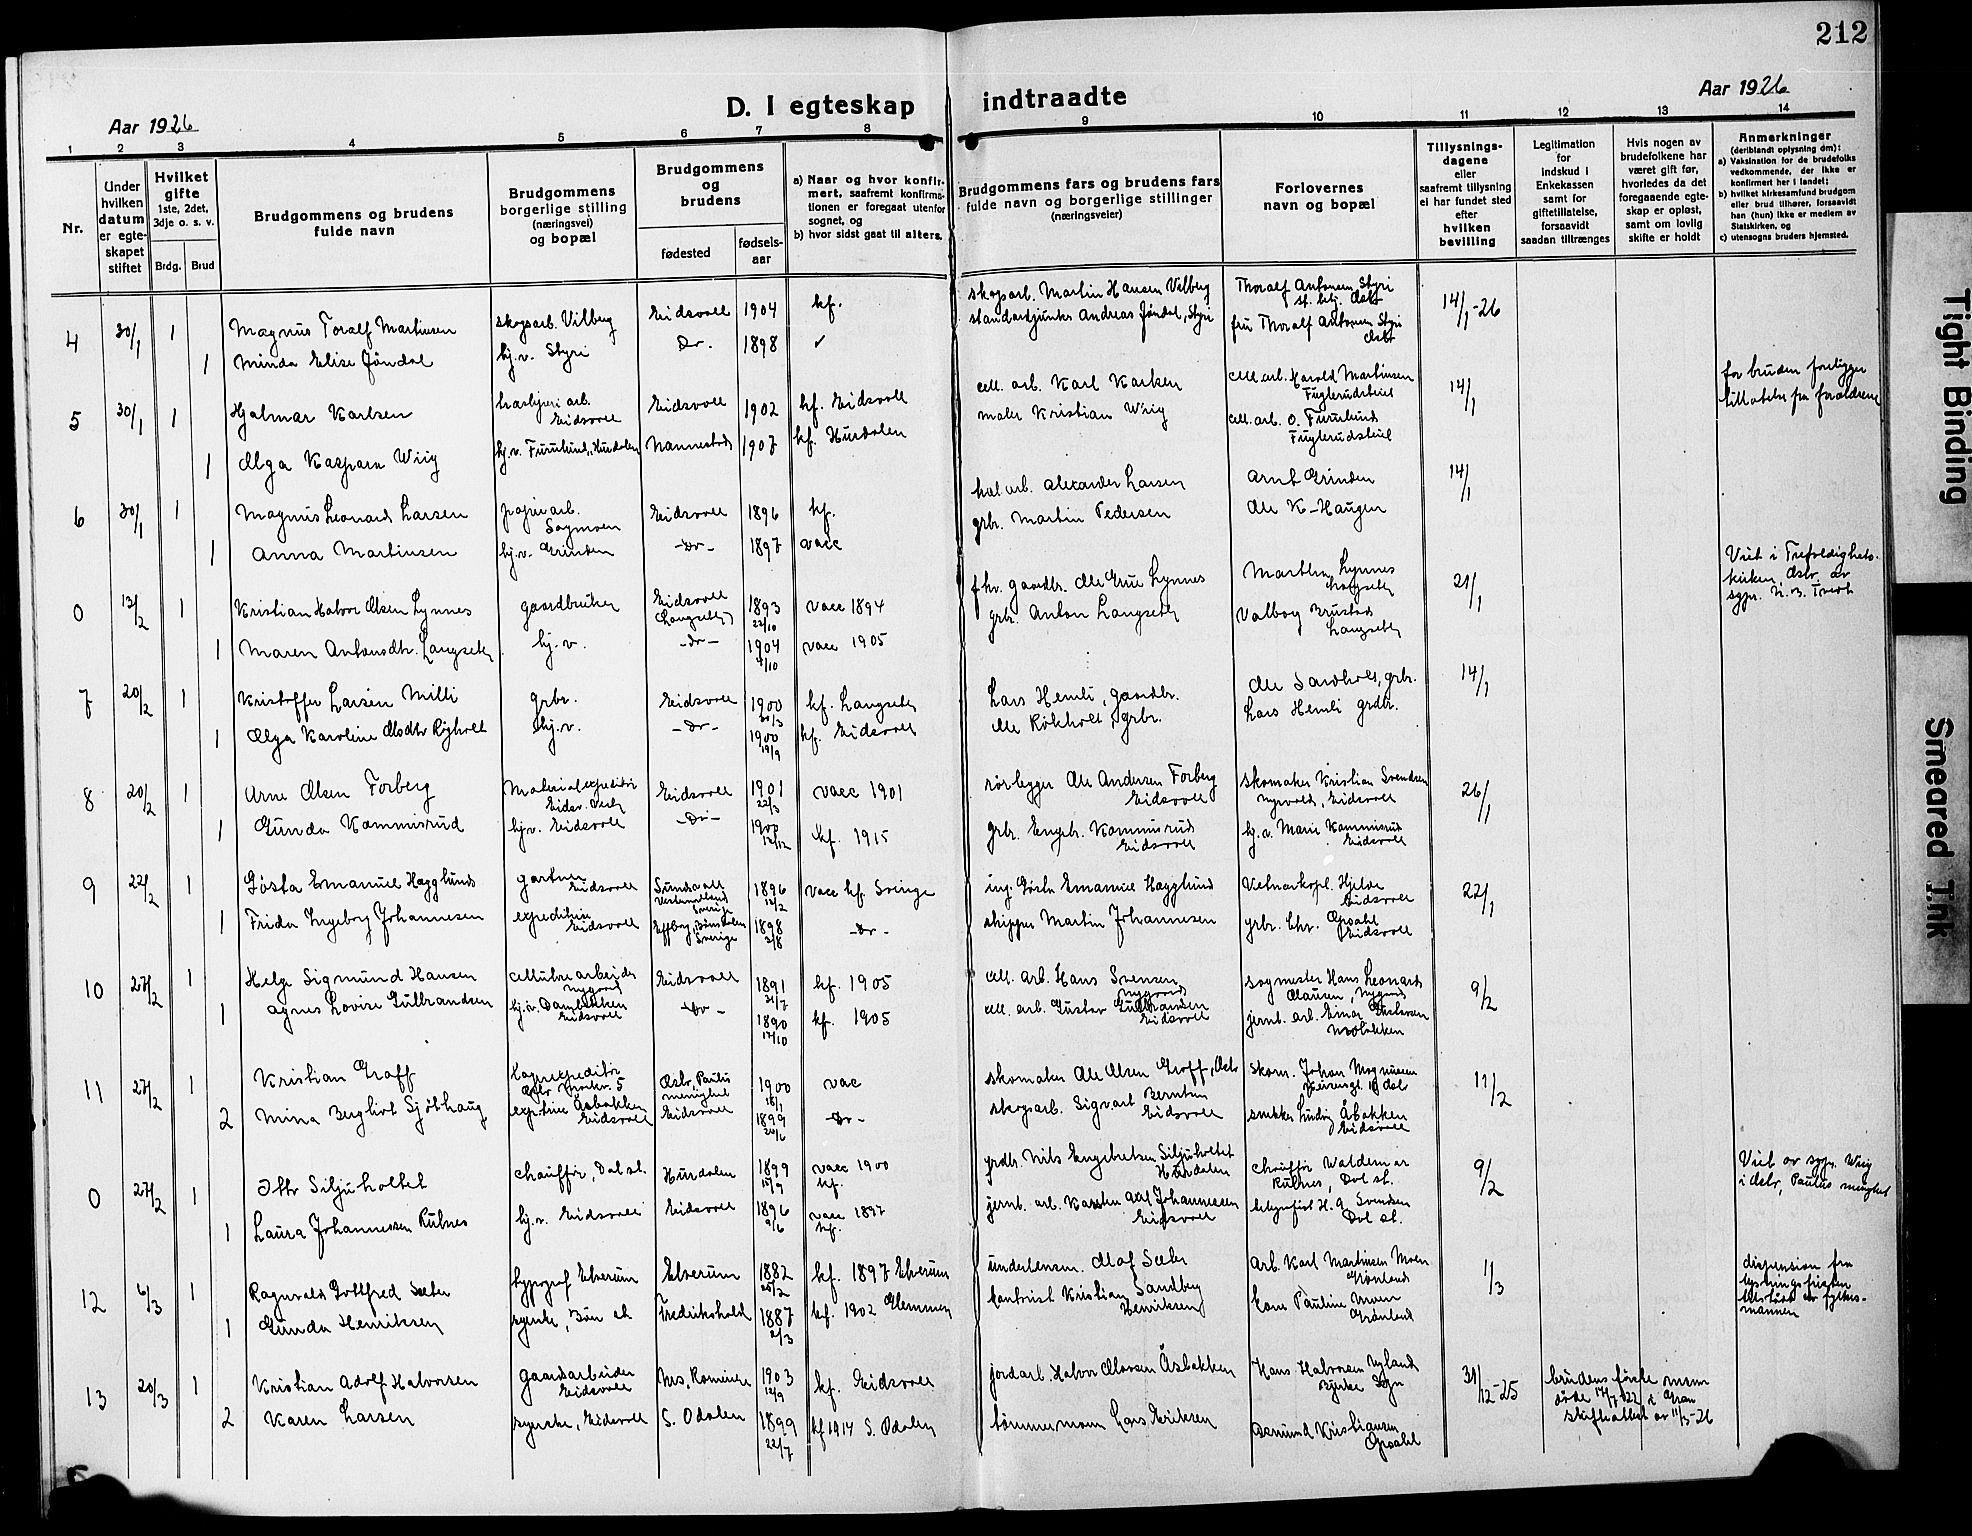 212
Aar 1926
D. I egteskap indtraadte
Aar 1926
1 2 3 4 5 6 7 8 9 10 11 12 13 14
Nr.
Under hvilken datum er egteskapet stiftet
Hvilket gifte
1ste, 2det, 3dje o. s. v.
Brdg. Brud
Brudgommens og brudens fulde navn
Brudgommens borgerlige stilling (næringsvei) og bopæl
Brudgommens og brudens
fødested
fødsels-aar
a) Naar og hvor konfirmert, saafremt konfirmationen er foregaat utenfor sognet, og
b) hvor sidst gaat til alters.
Brudgommens fars og brudens fars fulde navn og borgerlige stillinger (næringsveier)
Forlovernes navn og bopæl
Tillysningsdagene eller saafremt tillysning ei har fundet sted efter hvilken bevilling
Legitimation for indskud i Enkekassen samt for giftetillatelse, forsaavidt saadan tiltrænges
Hvis nogen av brudefolkene har været gift før, hvorledes da det foregaaende egteskap er opløst, samt om lovlig skifte er holdt
Anmerkninger
(deriblandt oplysning om):
a) Vaksination for de brudefolks vedkommende, der ikke er konfirmert her i landet;
b) hvilket kirkesamfund brudgom eller brud tilhører, forsaavidt han (hun) ikke er medlem av Statskirken, og
c) utensogns bruders hjemsted.
4 30/1 1 Magnus Toralf Martinsen skogsarb. Vilberg Eidsvoll 1904 kf. skogsarb. Martin Hansen Vilberg Thoralf Antonsen Styri 14/1-26
1 Minda Elise Jøndal hj.v. Styri Do. 1898 Andreas Jøndal, Styri fru Thoralf Antonsen Styri
5 30/1 1 Hjalmar Karlsen Eidsvoll Eidsvoll 1902 kf. Eidsvoll cell. arb. Karl Karlsen cell. arb. Harald Martinsen 14/1 for bruden foreligger
1 Olga Kaspara Wiig hj.v. Furulund, Hurdalen Nannestad 1907 kf. Hurdalen maler Kristian Wiig cell. arb. O. Furulund tillatelse fra forældrene
6 30/1 1 Magnus Leonard Larsen Eidsvoll 1896 kf. Alexander Larsen Arnt Grinden 14/1
1 Anna Martinsen hj.v. Grinden -Do- 1897 vacc grbr. Martin Pedersen Ole K. Haugen
0 13/2 1 Kristian Halvor Olsen Lynnes gaardbruker Eidsvoll (Langseth) 1893 22/10 vacc 1894 fhv. gaardbr. Ole Grue Lynnes Lynnes Langseth 21/1 Viet i Trefoldighets-
kirken, Oslo av
1 Maren Antonsdtr. Langseth hj.v. -do- 1904 vacc 1905 grbr. Anton Langseth Valborg Brustad Langseth
7 20/2 1 Kristoffer Larsen Milli grbr. Eidsvoll 1900 kf. Langseth Lars Hemli, gaardbr. Ole Sandholt, grbr. 14/1
1 Olga Karoline Olsdtr Røjholt hj.v. -Do- 1900 19/9 kf. Eidsvoll grbr. Lars Hemli grdbr.
8 20/2 1 Arne Olsen Forberg Materialexpeditør Eidsv. Verk Eidsvoll 1901 22/3 vacc 1901 rørlegger Ole Andersen Forberg Eidsvoll skomaker Kristian Svendsen Eidsvoll 26/1
1 Gunda Kommisrud hj.v. Eidsvoll -Do- 1900 12/12 kf. 1915 grbr. Engebr. Kommisrud Eidsvoll hj.v. Marie Kommisrud Eidsvoll
9 22/2 1 Gøsta Emanuel Hägglund gartner Eidsvoll Sundsvall Sverige 1896 12/2 vacc kf. Sverige ing. Gösta Emanuel Hägglund Hjelde Eidsvoll 22/1
1 Frida Ingeborg Johannesen Eidsvoll Sverige 1898 2/8 -Do- skipper Martin Johannesen grbr. Chr. Opsahl Eidsvoll
10 27/2 1 Helge Sigmund Hansen cellulosearbeider Nygaard Eidsvoll 1891 21/7 kf. 1905 cell. arb. Hans Svensen Nygaard sagmester Hans Leonard Olausen, Nygaard 9/2
1 Agnes Lovise Gulbrandsen hj.v. Dambakken Eidsvoll -Do- 1890 17/10 kf. 1905 cell. arb. Gustav Gulbrandsen Eidsvoll jernb. arb. Einar Gustavsen
11 27/2 1 Kristian Graff Oslo, Paulus menighet 1900 vac skomaker Ole Olsen Graff, Oslo skom. Johan Magnussen 11/2
2 Mina Bergliot Sjøthaug Aasbakken Eidsvoll Eidsvoll 1899 20/6 -Do- skogsarb. Sigvart Berntsen Eidsvoll snekker Ludvig Åsbakken Eidsvoll
0 27/2 1 Otto Siljuholtet chauffør, Dal st. Hurdalen 1899 15/9 vacc 1900 kf. grdbr. Nils Engebretsen Siljuholtet Hurdalen chauffør Waldemar Rulnes, Dal st. 9/2 Viet av sogn. Wiig
i Oslo, Paulus menighet
1 Laura Johannessen Rulnes hj.v. Eidsvoll Eidsvoll 1896 9/6 vacc 1897 kf. jernb. arb. Karsten Johannessen Eidsvoll telegrafist H. A. Svendsen Dal st.
12 6/3 1 Ragnvald Gottfred Sæter typograf Elverum Elverum 1882 20/2 kf. 1897 Elverum underlensm. Olaf Sæter Arb. Karl Martinsen Moen Grønland 1/3 dispensasjon fra
lysningsfristen
tilstått av fylkes-
mannen
1 Gunda Henriksen syerske, Bøn st. Fredrikshald 1887 2/3 kf. 1902 Glemmen Kristian Sandberg Henriksen Pauline Moen Grønland
13 20/3 1 Kristian Adolf Halvorsen gaardsarbeider Eidsvoll Nes, Romerike 1903 12/9 kf. Eidsvoll jordarb. Halvor Olavsen Åsbakken Hans Halvorsen Nyland 31/12-25 brudens første mann
døde 17/7-22 i Gran
skifteattest av 11/3-26
2 Karen Larsen syerske, Eidsvoll S. Odalen 1899 22/7 kf 1914 S. Odalen tømmermann Lars Eriksen Asmund Kristiansen Opsahl
Tight Binding
Smeared Ink